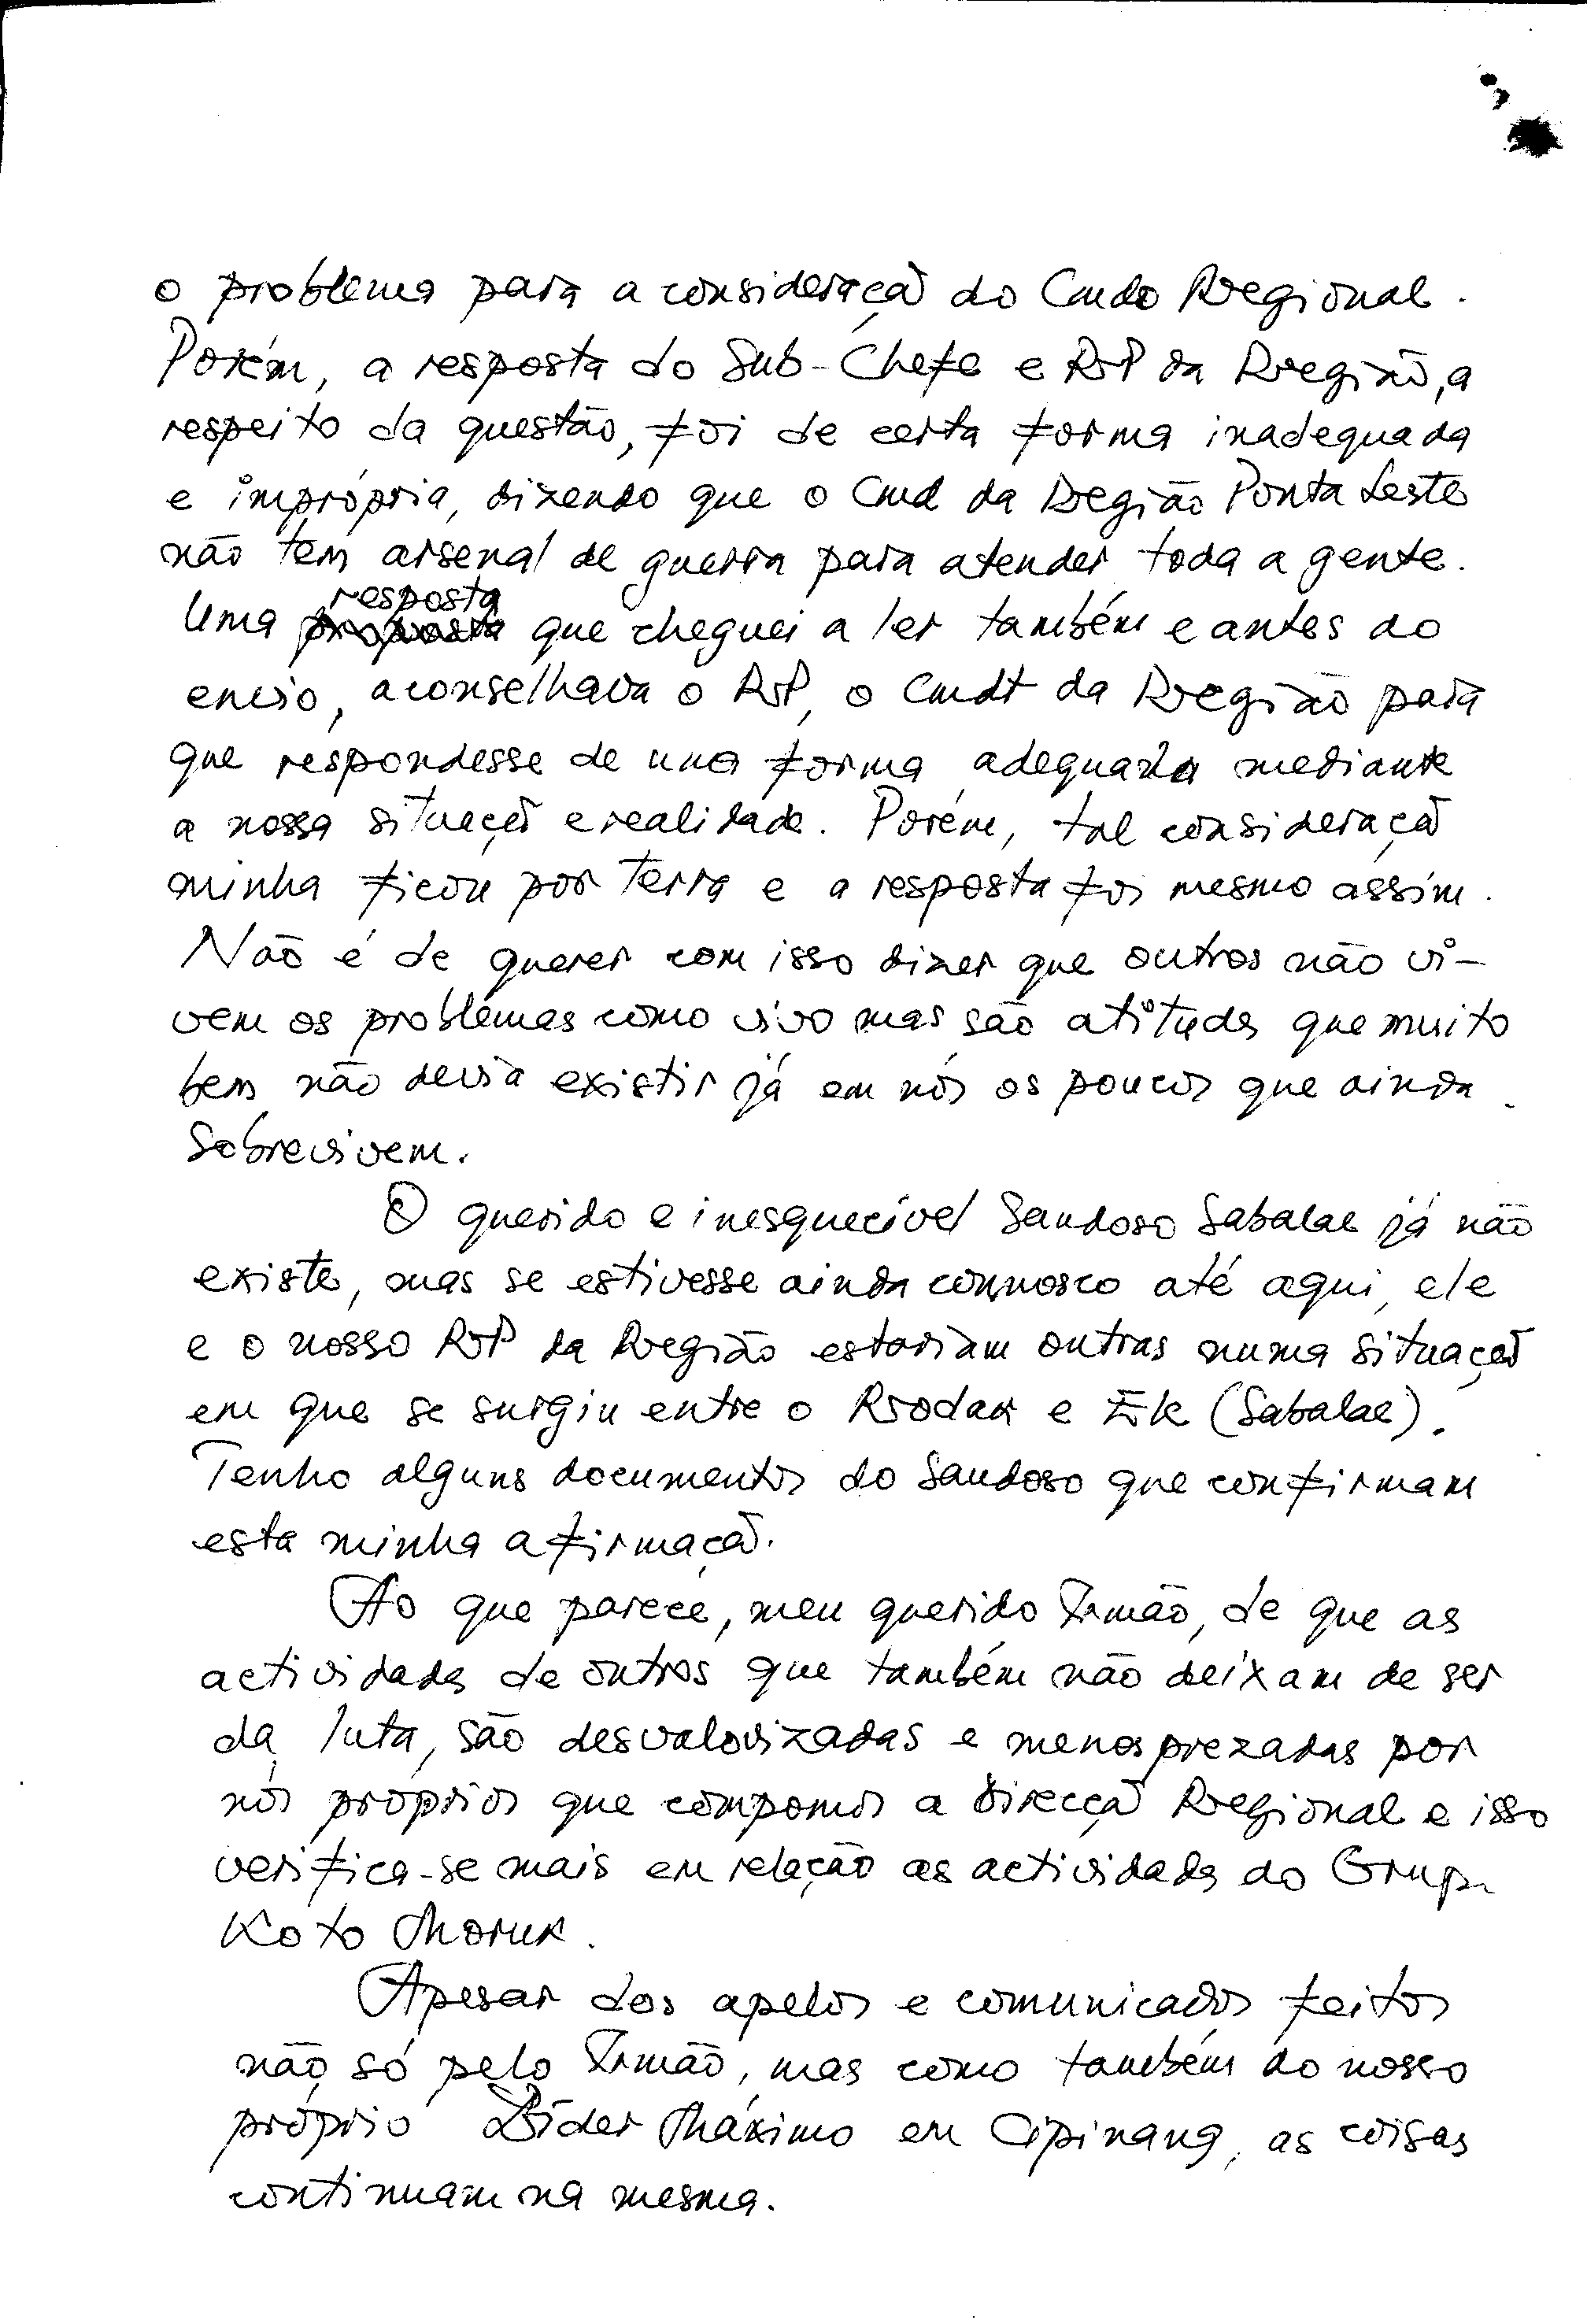 o problema para a consideração do Cmdo Regional.
Porém, a resposta do Sub-Chefe e RP da Região, a
respeito da questão, foi de certa forma inadequada
e imprópria, dizendo que o Cmd da Região Ponta Leste
não tem arsenal de guerra para atender toda a gente.
Uma resposta que cheguei a ler também e antes do
envio, aconselhava o RP, o Cmdt da Região para
que respondesse de uma forma adequada mediante
a nossa situação e realidade. Porém, tal consideração
minha ficou por terra e a resposta foi mesmo assim.
Não é de querer com isso dizer que outros não vi-
vem os problemas como vivo mas são atitudes que muito
bem não devia existir já em nós os poucos que ainda
sobrevivem.
O querido e inesquecível Saudoso Sabalae já não
existe, mas se estivesse ainda connosco até aqui, ele
e o nosso RP da Região estariam outras numa situação
em que se surgiu entre o Rodak e Ek (Sabalae).
Tenho alguns documentos do Saudoso que confirmam
esta minha afirmação.
Ao que parece, meu querido Irmão, de que as
actividades de outros que também não deixam de ser
da luta, são desvalorizadas e menosprezadas por
nós próprios que compomos a Direcção Regional e isso
verifica-se mais em relação as actividades do Grupo
Koto Moruk.
Apesar dos apelos e comunicados feitos
não só pelo Irmão, mas como também do nosso
próprio Líder Máximo em Cipinang, as coisas
continuam na mesma.